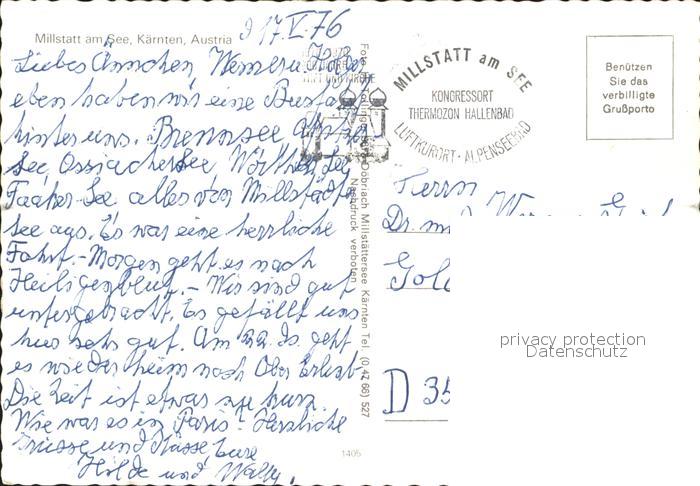 Millstatt am See, Kärnten, Austria
17.V.76
Liebes Ännchen, Werner u.
eben haben wir eine Busfahrt
hinter uns. Brennsee
See Ossiachersee Wörther See
Faaker-See alles von Millstädter
See aus. Es war eine herrliche
Fahrt. - Morgen geht es nach
Heiligenblut. - Wir sind gut
untergebracht. Es gefällt uns
hier sehr gut. Am 22. ds. geht
es wieder heim nach Ober
Die Zeit ist etwas zu kurz.
Wie war es in Paris? Herzliche
Grüsse und Küsse, Eure
Hilde und Wally.
Döbriach Millstättersee Kärnten Tel. (0 42 66) 527
Nachdruck verboten
1405
MILLSTATT am SEE
KONGRESSORT
THERMOZON HALLENBAD
LUFTKURORT - ALPENSEEBAD
Benützen
Sie das
verbilligte
Grußporto
Herrn
Dr. m
D 35
privacy protection
Datenschutz